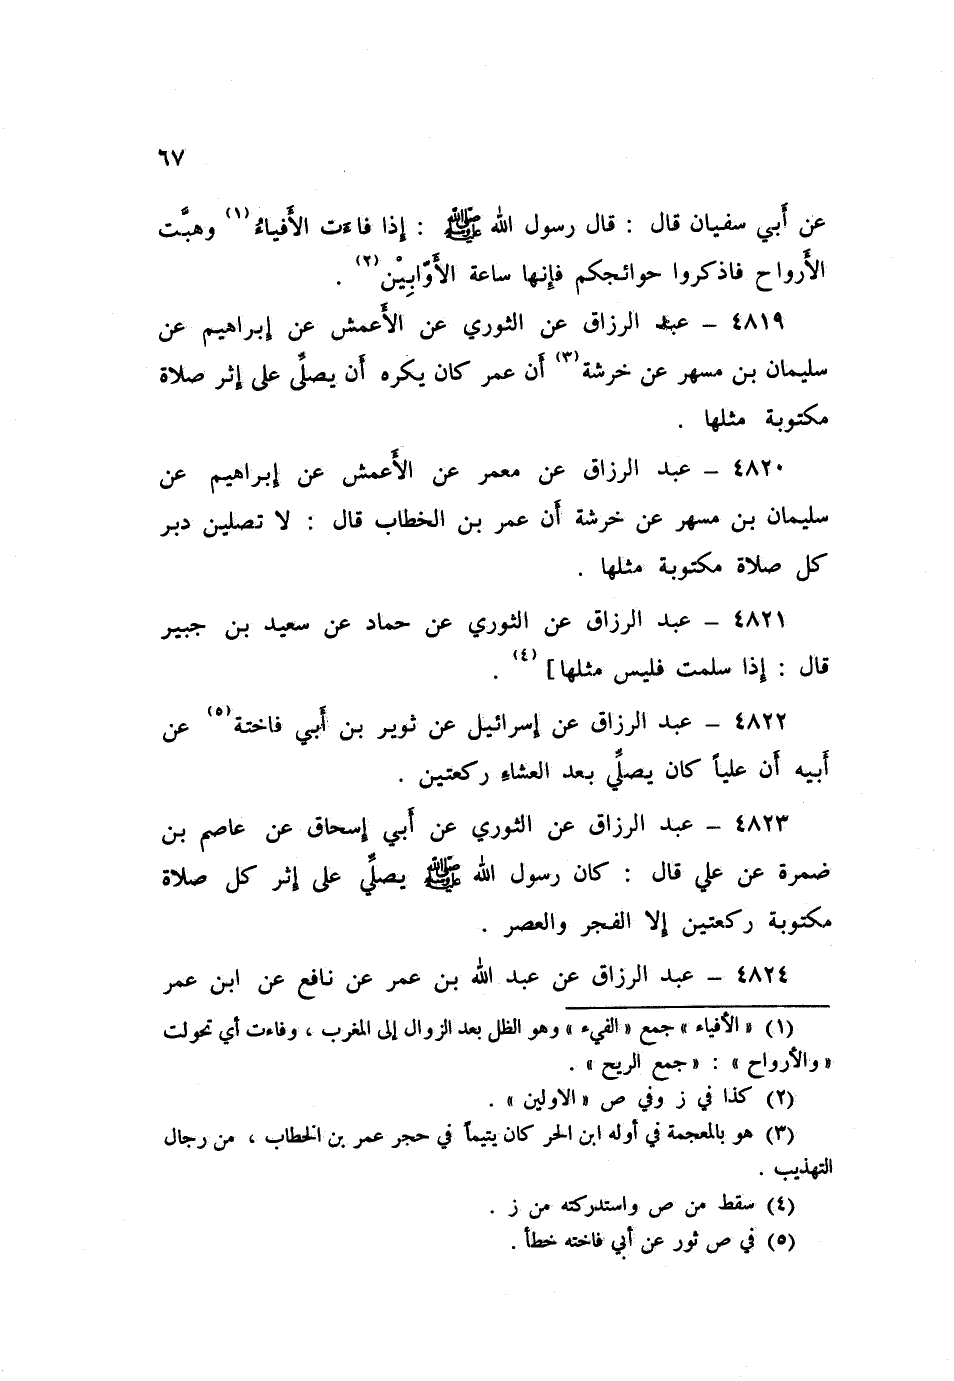 ٦٧
عن أَبي سفيان قال : قال رسول الله ﷺ : إِذا فاءَت الأَفياءُ(١) وهبَّت
الأَرواح فاذكروا حوائجكم فإِنها ساعة الأَوّابِيْن(٢) .
٤٨١٩ ــ عبد الرزاق عن الثوري عن الأَعمش عن إِبراهيم عن
سليمان بن مسهر عن خرشة(٣) أَن عمر كان يكره أَن يصلَّى على إِثر صلاة
مكتوبة مثلها .
٤٨٢٠ ــ عبد الرزاق عن معمر عن الأَعمش عن إِبراهيم عن
سليمان بن مسهر عن خرشة أَن عمر بن الخطاب قال : لا تصلين دبر
كل صلاة مكتوبة مثلها .
٤٨٢١ ــ عبد الرزاق عن الثوري عن حماد عن سعيد بن جبير
قال : إِذا سلمت فليس مثلها](٤) .
٤٨٢٢ ــ عبد الرزاق عن إِسرائيل عن ثوير بن أَبي فاختة(٥) عن
أَبيه أَن علياً كان يصلِّي بعد العشاءِ ركعتين .
٤٨٢٣ ــ عبد الرزاق عن الثوري عن أَبي إِسحاق عن عاصم بن
ضمرة عن علي قال : كان رسول الله ﷺ يصلِّي على إِثر كل صلاة
مكتوبة ركعتين إِلا الفجر والعصر .
٤٨٢٤ ــ عبد الرزاق عن عبد الله بن عمر عن نافع عن ابن عمر
(١) «الأفياء» جمع «الفيء» وهو الظل بعد الزوال إلى المغرب ، وفاءت أي تحولت
«والأرواح» : «جمع الريح» .
(٢) كذا في ز وفي ص «الاولين» .
(٣) هو بالمعجمة في أوله ابن الحر كان يتيماً في حجر عمر بن الخطاب ، من رجال
التهذيب .
(٤) سقط من ص واستدركته من ز .
(٥) في ص ثور عن أبي فاخته خطأ .